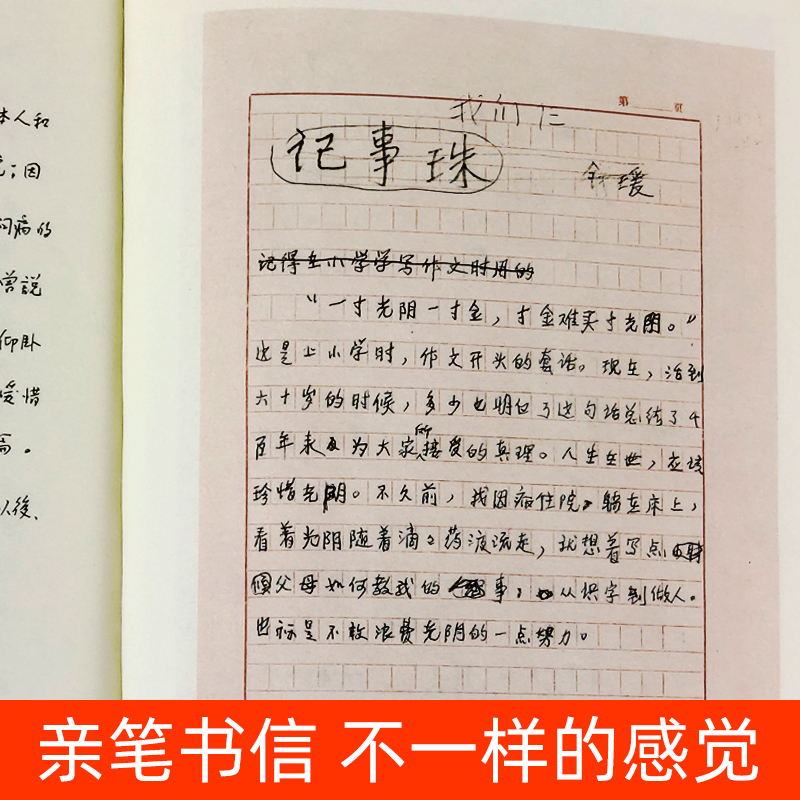 本人和
；因
病的
曾説
仰卧
爱惜
。
以後、
第 页
我们仨
记事珠
钱瑗
记得在小学学写作文时用的
“一寸光阴一寸金，寸金难买寸光阴。”
这是上小学时，作文开头的套话。现在，活到
六十岁的时候，多少也明白了这句话总结了千
百年来为大家所接受的真理。人生在世，应该
珍惜光阴。不久前，我因病住院。躺在床上，
看着光阴随着滴滴药液流走，就想着写点
父母如何教我的事，从识字到做人。
也算是不敢浪费光阴的一点努力。
亲笔书信 不一样的感觉